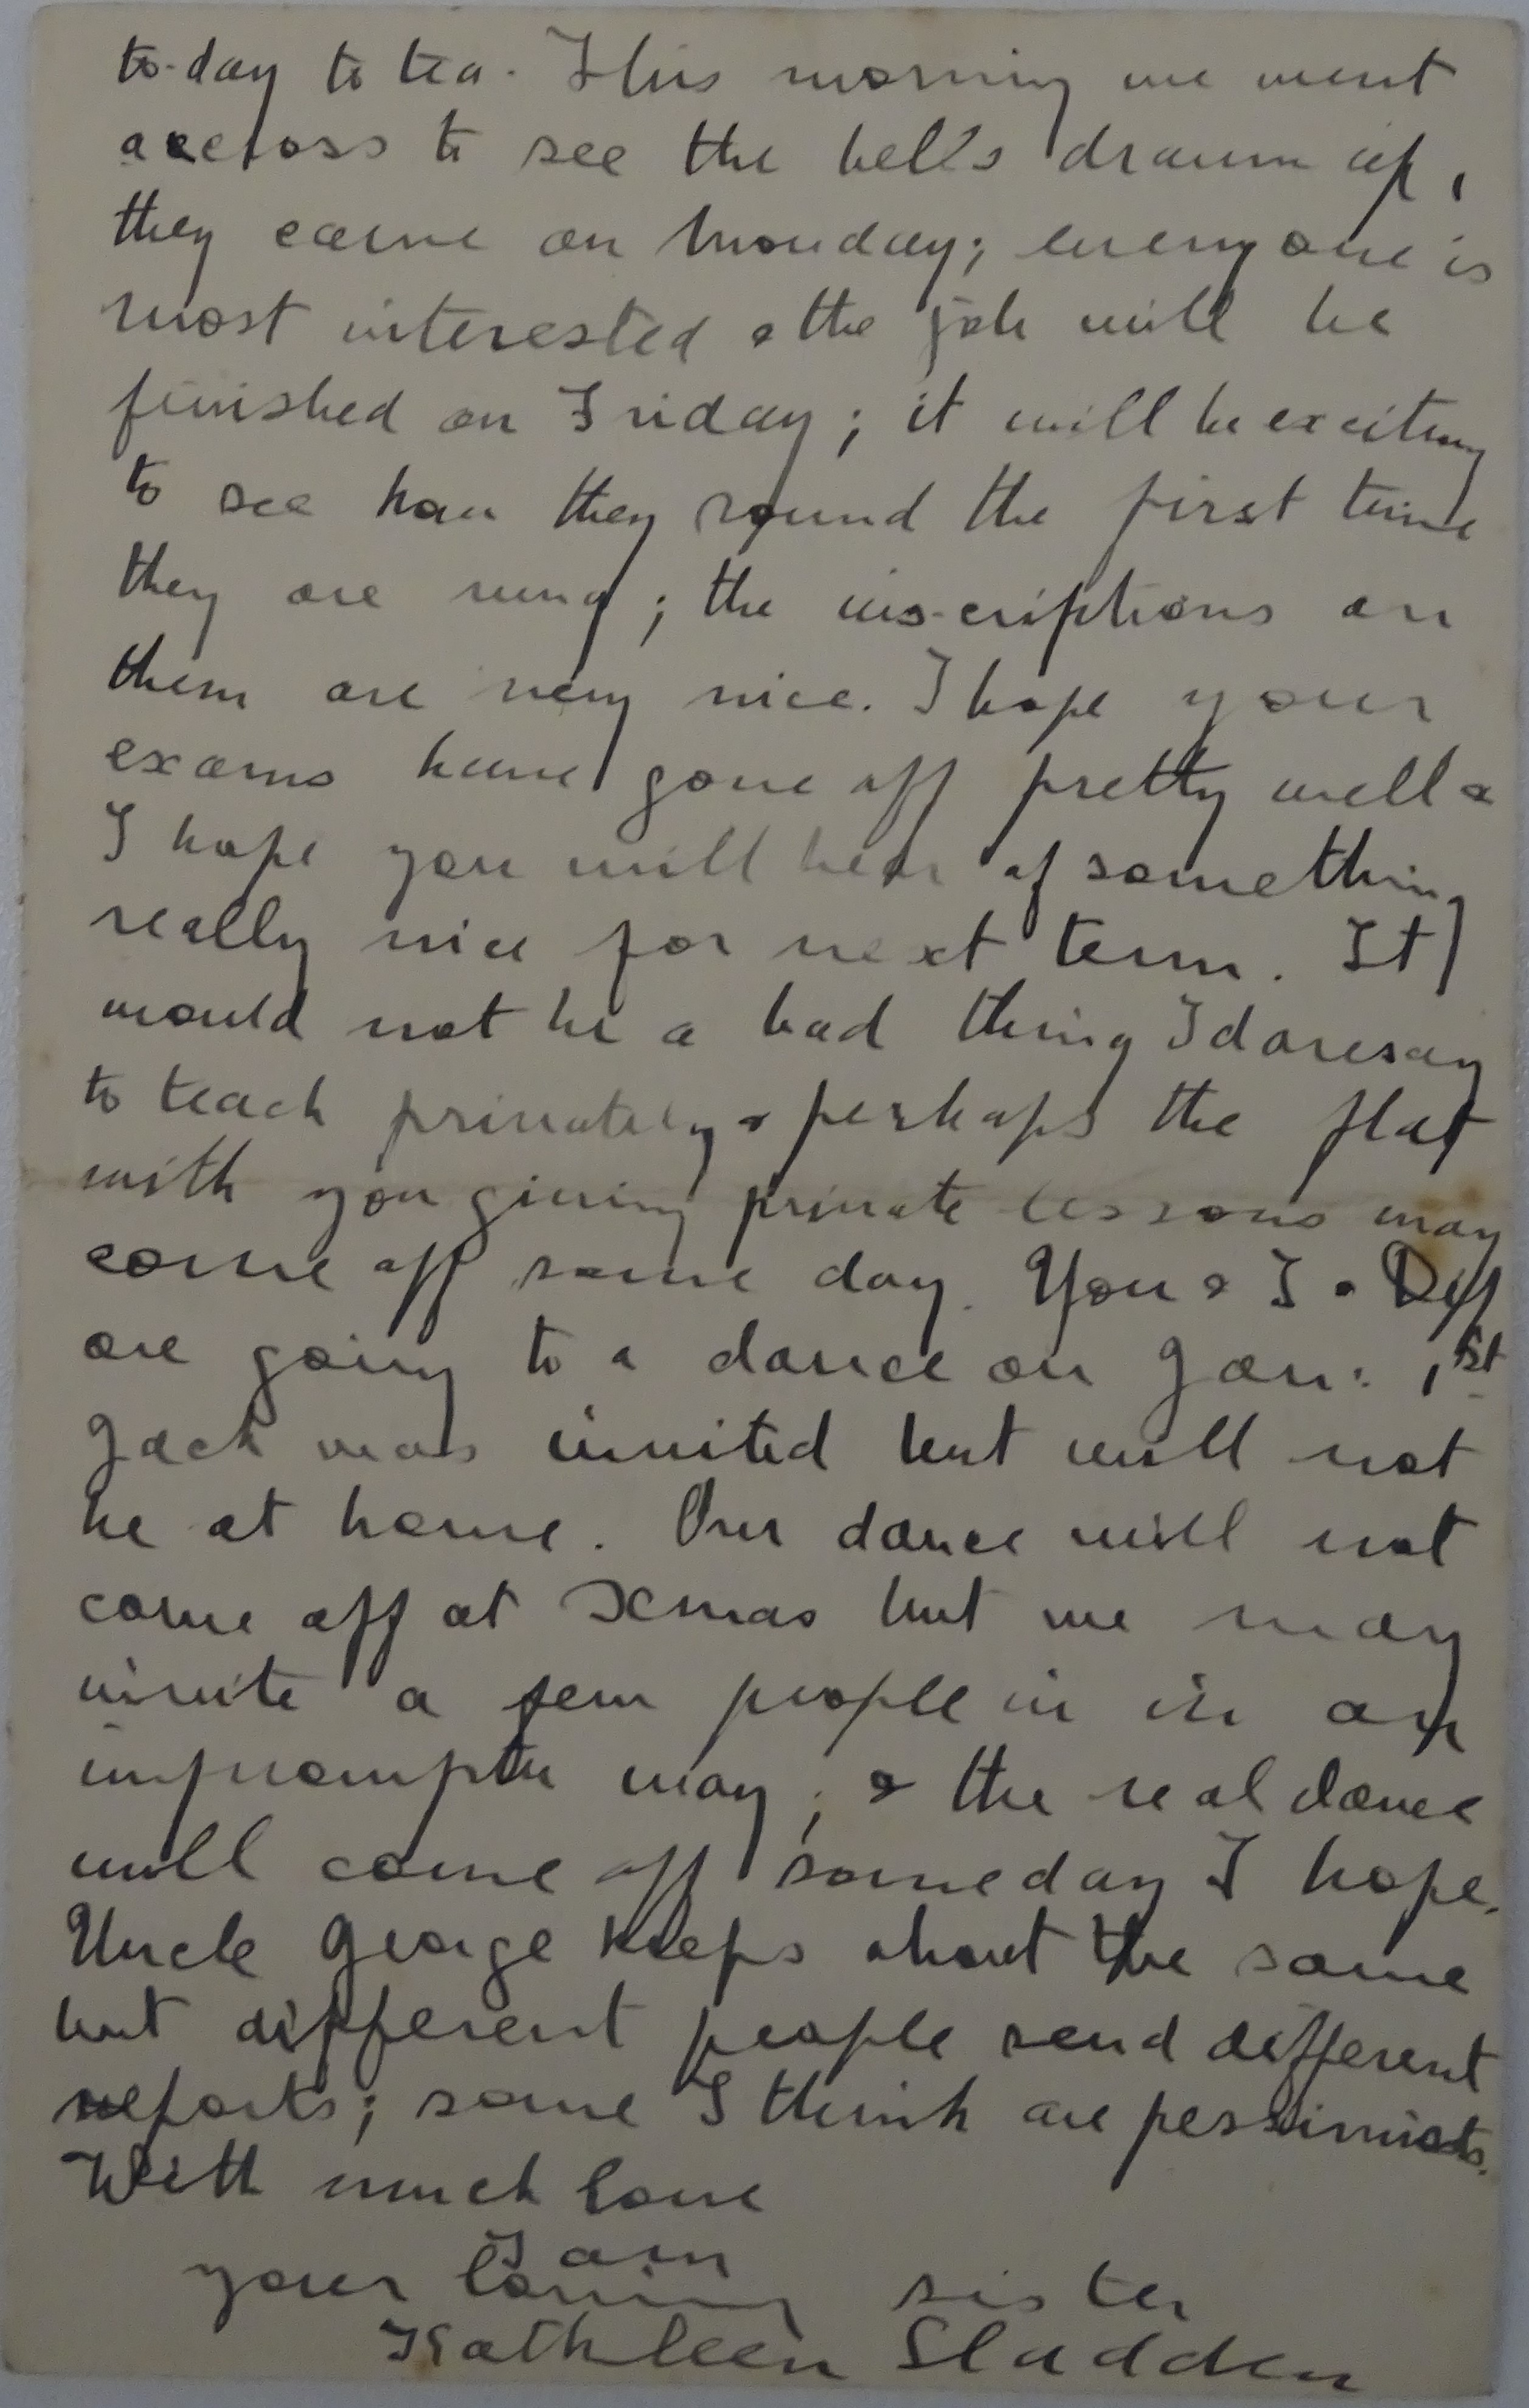 to-day to tea. This morning we went
across to see the bells drawn up,
they came on Monday; everyone is
most interested & the job will be
finished on Friday; it will be exciting
to see how they sound the first time
they are rung; the ins-criptions on
them are very nice. I hope your
exams have gone off pretty well &
I hope you will hear of something
really nice for next term. It
would not be a bad thing I daresay
to teach privately & perhaps the flat
with you giving private lessons may
come off some day. You & I &
are going to a dance on Jan: 1st
Jack was invited but will not
be at home. Our dance will not
come off at Xmas but we may
invite a few people in in an
impromptu way, & the real dance
will come off someday I hope.
Uncle George keeps about the same
but different people send different
reports; some I think are pessimists.
With much love
I am
your loving sister
Kathleen Sladden